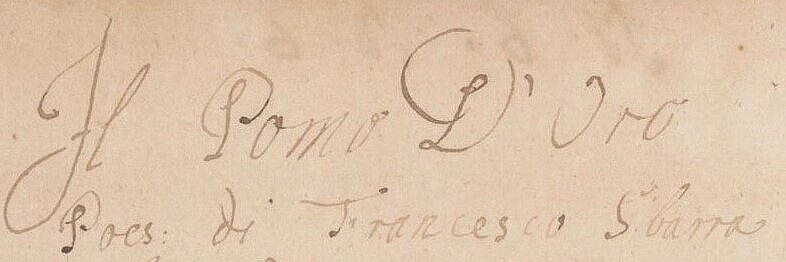 Il Pomo D'Oro
Poes: di Francesco Sbarra